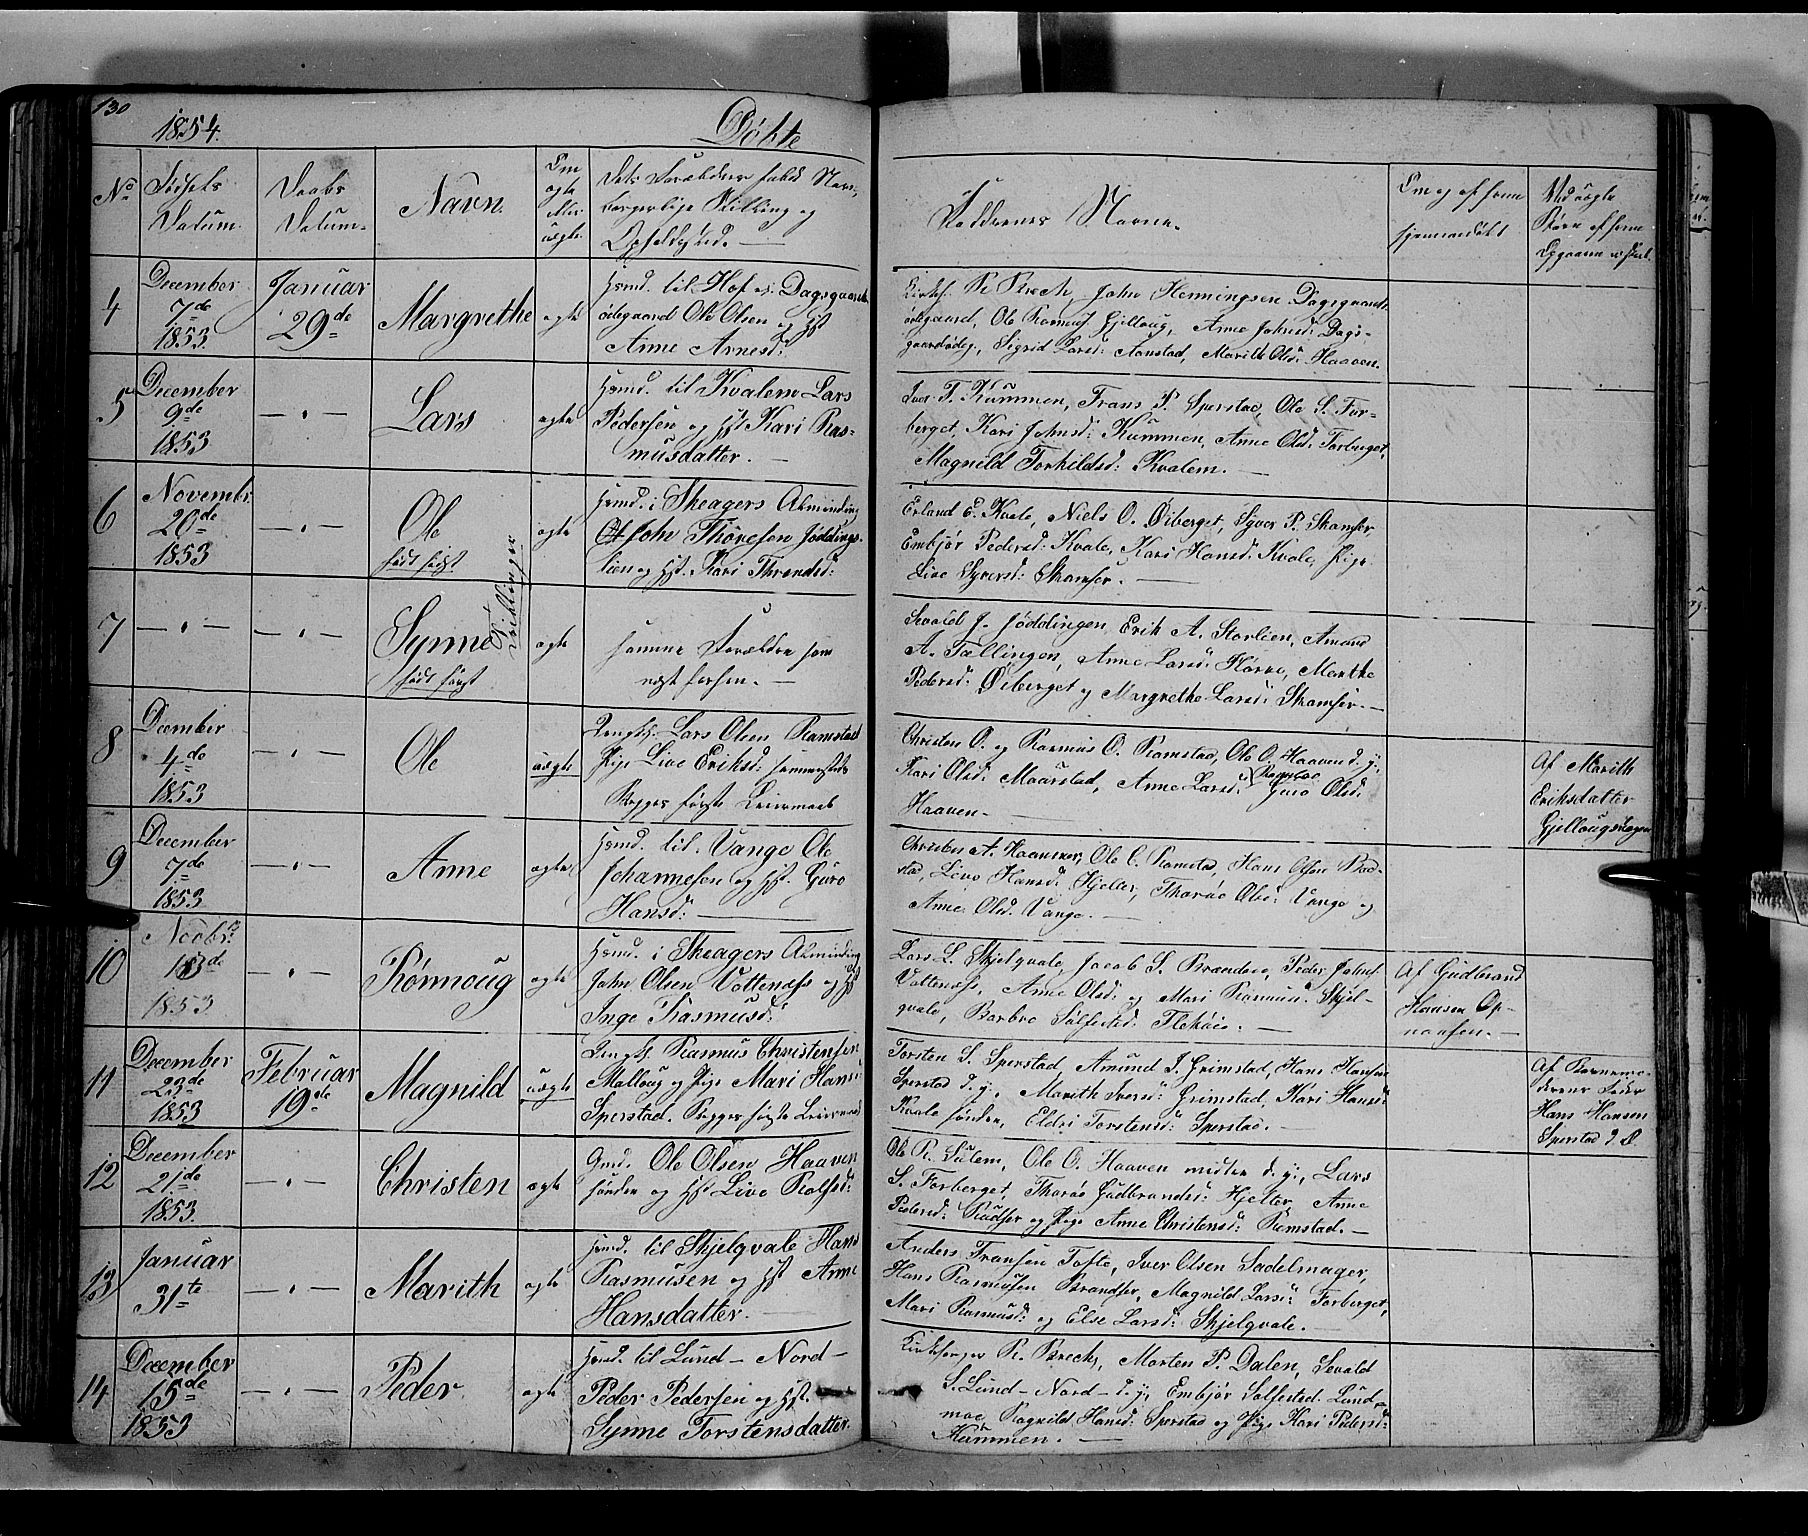 130
1854.
Döbte
No
Födsels
Datum.
Daabs
Datum.
Navn.
Om
ægte
eller
uægte
Dets Forældres fulde Navn,
borgerlige Stilling og
Opholdssted. —
Faddernes Navne.
Om og af hvem
hjemmedöbt
Ved uægte
Börn af hvem
4
December
7de
1853.
Januar
29de
Margrethe
ægte
Hmd. til Hof og Dagsgaards
ödegaard Ole Olsen og Hst
Anne Arnesd:
Kirkes. R. Brech, John Hemmingsen Dagsgaards
ödegaard, Ole Rasmus. Gjelloug, Anne Johnsd: Dags-
gaardsödeg., Sigrid Larsd: Aanstad, Marith Olsd: Haaven.
5
December
9de
1853
— " —
Lars
ægte
Hmd. til Kvalem Lars
Pedersen og Hst Kari Ras-
musdatter. —
Iver T. Kummen, Frans P. Sperstad, Ole S. For-
berget, Kari Johnsd: Kummen, Anne Olsd: Forberget,
Magnild Torkildsd: Kvalem. —
6
Novembr.
20de
1853
— " —
Ole
födt sidst
Tvillinger
ægte
Hmd. i Skeagers Alminding
John Thoresen Jöddings-
lien og Hst. Kari Throndsd:
Erland E. Kvale, Niels O. Öiberget, Syver P. Skamser,
Embjör Pedersd: Kvale, Kari Hansd: Kvale, Pige
Live Syversd: Skamser. —
7
— " —
— " —
Synne
födt först
ægte
samme Forældre som
næst forhen. —
Sevald J. Jöddingen, Erik A. Storlien, Amund
A. Tællingen, Anne Larsd: Flörre, Marthe
Pedersd: Öiberget og Margrethe Larsd: Skamser. —
8
Dcember
4de
1853
— " —
Ole
uægte
Ungk. Lars Olsen Ramstad
Pige Live Eriksd: sammesteds
Begges förste Leiermaal
Christen O. og Rasmus O. Ramstad, Ole O. Haaven d. y.,
Kari Olsd: Maarstad, Anne Larsd: Ramstad Guro Olsd:
Haaven. —
Af Marith
Eriksdatter
9
December
7de
1853
— " —
Anne
ægte
Hmd. til Vange Ole
Johannesen og Hst. Guro
Hansd: —
Christen A. Haansnar, Ole C. Ramstad, Hans Olsen Bad-
stad, Live Hansd: Hjelter, Thoröe Olsd: Vange og
Anne Olsd. Vange. —
10
13de
1853
— " —
Rönnoug
ægte
Hmd. i Skeagers Alminding
John Olsen Vottenæss og Hst
Inge Rasmusd:
Lars L. Skjelqvale, Jacob S. Brændöe, Peder Johns.
Vottenæss, Anne Olsd: og Mari Rasmusd: Skjel-
qvale, Barbro Sölfestsd: Fleköie. —
Af Gudbrand
Hansen Op-
11
December
23de
1853
Februar
19de
Magnild
uægte
Ungk. Rasmus Christensen
Malloug og Pige Mari Hans:
Sperstad. Begges förste Leiermaal
Torsten S. Sperstad, Amund I. Grimstad, Hans Hansen
Sperstad d. y., Marith Iversd: Grimstad, Kari Hansd:
Kvale sönden, Eldri Torstensd: Sperstad. —
Af Barnemo-
derens Fader
Hans Hansen
Sperstad
12
December
21de
1853.
— " —
Christen
ægte
Gmd. Ole Olsen Haaven
sönden og Hst Live Rolfsd:
Ole R. Sulem, Ole O. Haaven midten d. y., Lars
S. Forberget, Thoröe Gudbrandsd: Hjelter, Anne
Pedersd: Rudser og Pige Anne Christensd: Ramstad. —
13
Januar
31te
— " —
Marith
ægte
Hmd. til Skjelqvale Hans
Rasmusen og Hst Anne
Hansdatter. —
Anders Fransen Tofte, Iver Olsen Sadelmager,
Hans Rasmusen Brandser, Magnild Larsd: Forberget,
Mari Rasmusd: og Else Larsd: Skjelqvale.
14
December
15de
1853
— " —
Peder
ægte
Hmd. til Lund — Nord —
Peder Pedersen og Hst.
Synne Torstensdatter.
Kirkesanger R. Brech, Morten P. Dalen, Sevald
S. Lund — Nord — d. y., Embjör Sölfestsd. Lund
moe, Ragnild Hansd: Sperstad og Pige Kari Pedersd:
Kummen. —